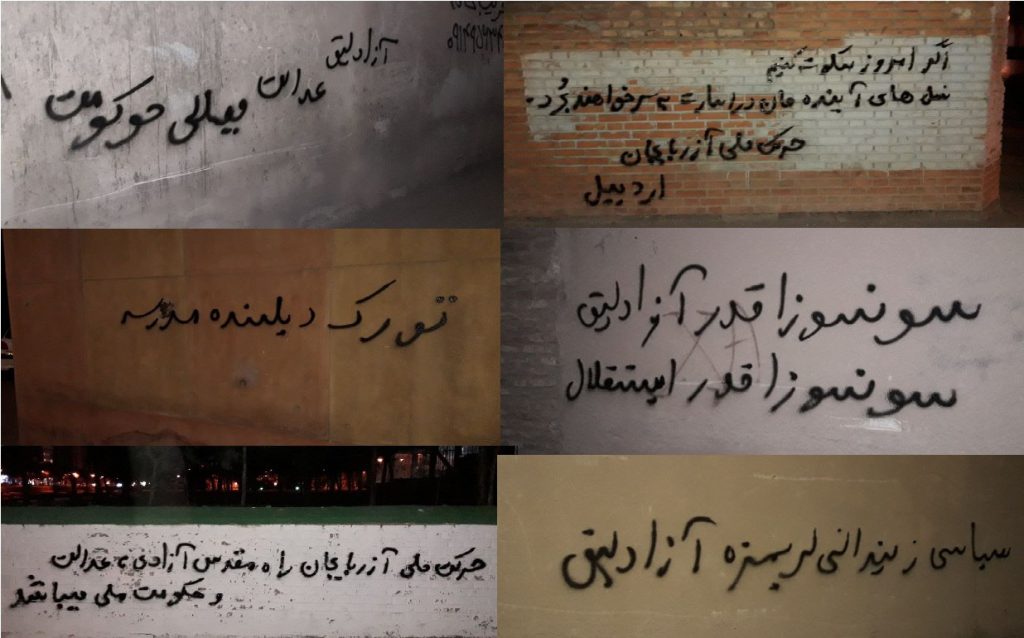 آزادلیق
عدالت
میللی حوکومت
اگر امروز سکوت کنیم
نسل های آینده مان در اسارت به سر خواهند بُرد.
حرکت ملی آزربایجان
اردبیل
تورک دیلینده مدرسه
سونسوزا قدر آزادلیق
سونسوزا قدر ایستقلال
حرکت ملی آزربایجان راه مقدس آزادی، عدالت
و حکومت ملی میباشد
سیاسی زیندانی لریمیزه آزادلیق